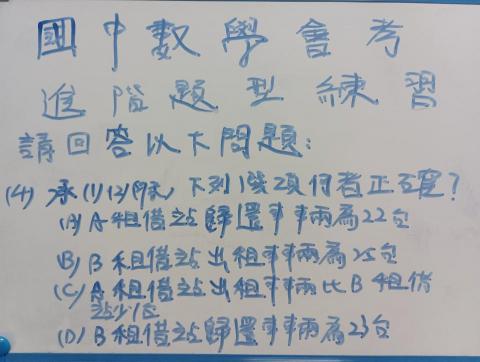 國中數學會考
進階題型練習
請回答以下問題:
(4) 承(1)(2)題, 下列選項何者正確?
(A) A租借站歸還車輛為22台
(B) B租借站出租車輛為25台
(C) A租借站出租車輛比B租借
站少1台
(D) B租借站歸還車輛為23台